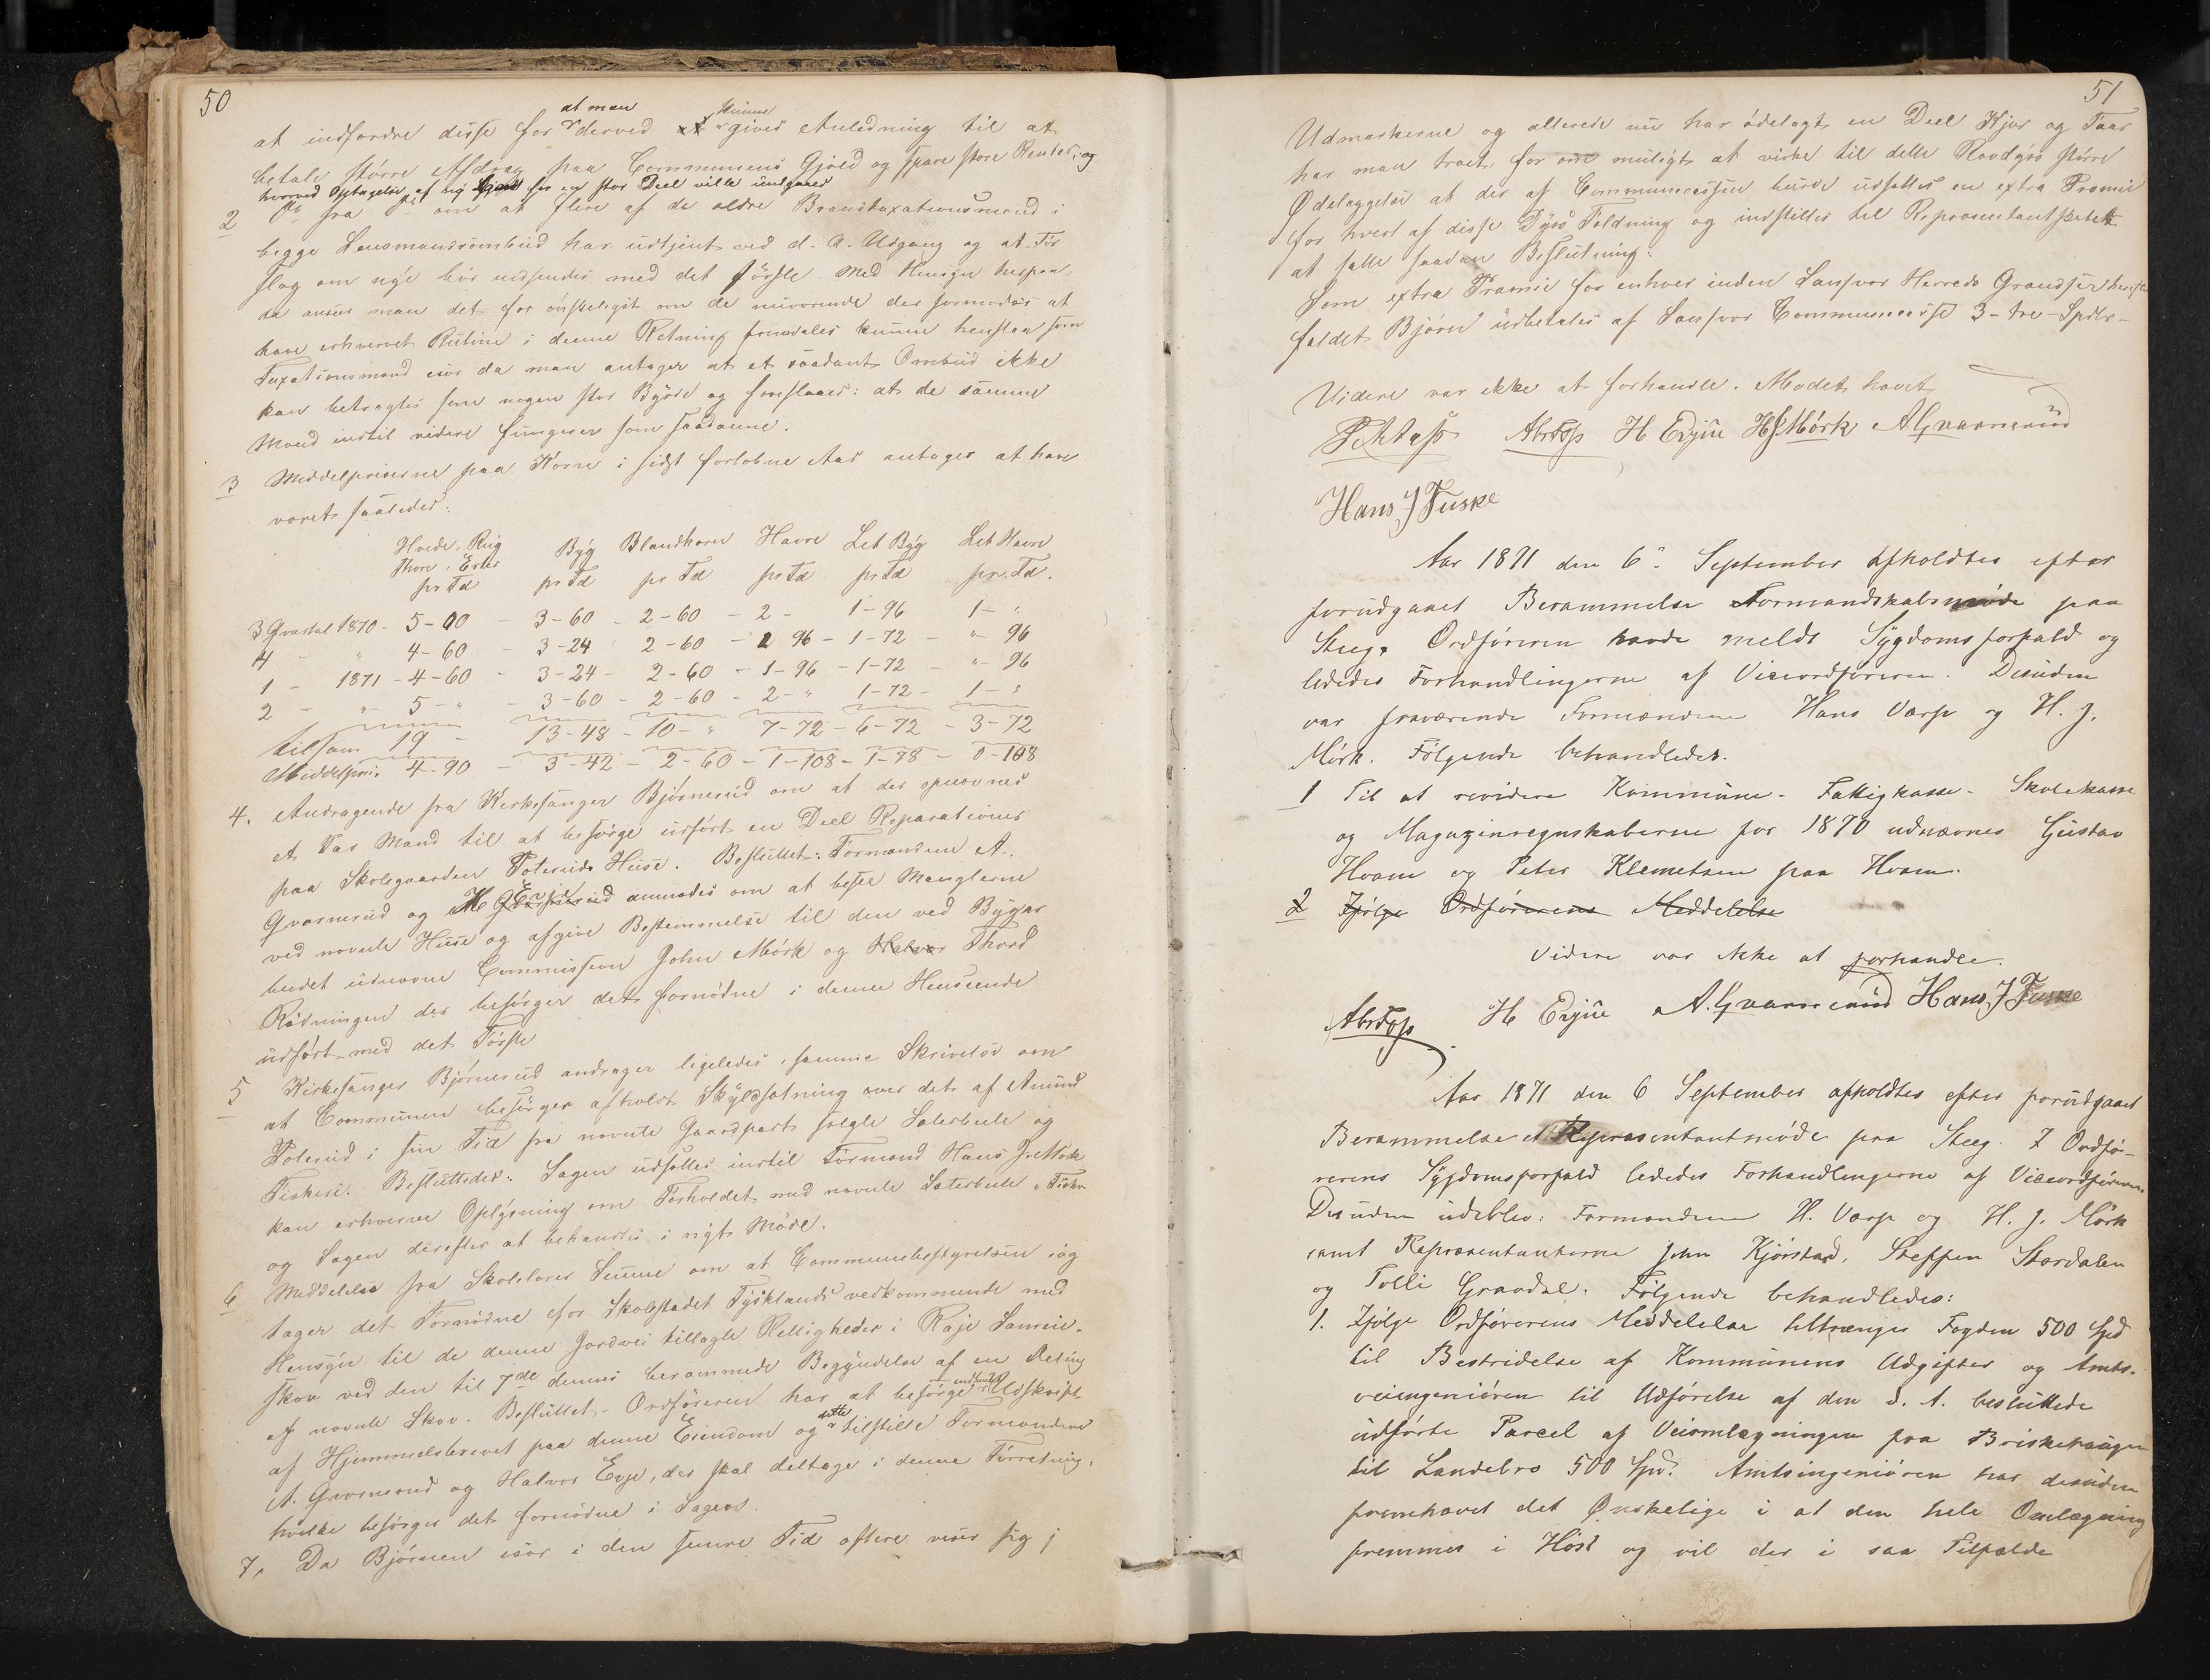 50
at indfordre disse for at man derved gives Anledning til at
betale større Afdrag paa Communens Gjæld og spare store Renter, og
hvorved Optagelse af ny for en stor Deel ville undgaaes
2 Do fra Do om at flere af de ældre Brandtaxationsmænd i
begge Lensmandsombud har udtjent ved d. A. Udgang og at For
slag om nye bør indsendes med det første. Med Hensyn hespaa,
da anser man det for ønskeligst om de nuværende der formodes at
have erhvervet Rutine i denne Retning fremdeles kunne henstaa som
Taxationsmænd især da man antager at et saadant Ombud ikke
kan betragtes som nogen stor Byrde og foreslaaes: at de samme
Mænd indtil videre fungerer som saadanne.
3 Middelpriserne paa Korn i sidst forløbne Aar antages at have
været saaledes:
Hvede, Rug Byg Blandkorn Havre Let Byg Let Havre
Erter
pr Td pr Td pr Td pr Td pr Td pr. Td.
3 Qvartal 1870 - 5-00 - 3-60 - 2-60 - 2 - 1-96 1 - "
4 - " 4-60 - 3-24 2-60 - 1 96 - 1-72 - " 96
1 - 1871 - 4-60 - 3-24 - 2-60 - 1-96 - 1-72 - " 96
2 - " 5 - " - 3-60 - 2-60 - 2 - " 1-72 - 1 - "
tilsam 19 - 13-48 - 10 - " 7-72 - 6-72 - 3-72
Middelpris 4-90 - 3-42 - 2-60 - 1-108 - 1-78 - 0-108
4. Andragende fra Kirkesanger Bjørnerud om at der opnævnes
et Par Mand til at besørge udført en Deel Reparationer
paa Skolegaarden Poteruds Huse. Besluttet: Formændene A.
Gvarnerud og H Evju anmodes om at bese Manglerne
ved nævnte Huse og afgive Bestemmelse til den ved Bygse
budet udnævne Commission John Mørk og Halvor Thord
Rødningen der besørger det fornødne i denne Henseende
udført med det Første
5 Kirkesanger Bjørnerud andrager ligeledes i samme Skrivelse om
at Communen besørger afholdt Skyldsætning over det af Amund
Poterud i sin Tid fra nævnte Gaardpart solgte Sæterbeite og
Fiskeri. Besluttedes: Sagen udsættes indtil Formand Hans J. Mørk
kan erhverve Oplysning om Forholdet med nævnte Sæterbeite & Fiskeri
og Sagen derefter at behandles i nyt Møde.
6 Meddelelse fra Skolelærer Sunne om at Communebestyrelsen iag
tager det Fornødne for Skolestedet Tysklands vedkommende med
Hensyn til de denne Jordvei tillagte Rettigheder i Raje Sameie-
skov ved den til 7de dennes berammede Begyndelse af en Deling
af nævnte Skov. Besluttet - Ordføreren har at besørge indhentet Udskrift
af Hjemmelsbrevet paa denne Eiendom og dette tilstille Formændene
A. Gvarnerud og Halvor Evju, der skal deltage i denne Forretning,
hvilke besørger det fornødne i Sagen.
7, Da Bjørnen især i den senere Tid oftere viser sig i
51
Udmarkerne og allerede nu har ødelagt en Deel Kjør og Faar
har man troet, for om muligt at virke til dette Rovdyrs større
Ødelæggelse at der af Communecassen burde udsættes en extra Præmie
for hvert af disse Dyrs Fældning og indstilles til Repræsentantskabet
at fatte saadan Beslutning:
Som extra Præmie for enhver inden Sansvær Herreds Grændser
fældet Bjørn udbetales af Sansvær Communecasse 3 - tre - Spdlr -
Videre var ikke at forhandle. Mødet hævet
H Evju HJMørk A. Gvarnerud
Hans J Fuske
Aar 1871 den 6te September afholdtes efter
forudgaaet Berammelse Formandskabsmøde paa
Steeg. Ordføreren havde meldt Sygdomsforfald og
lededes Forhandlingerne af Viceordføreren. Desuden
var fraværende Formændene Hans Varp og H. J.
Mørk. Følgende behandledes.
1 Til at revidere Kommune- Fattigkasse- Skolekasse
og Magazinregnskaberne for 1870 udnævnes Gustav
Hvam og Peter Klemetsen paa Hvam.
2 Ifølge Ordførerens Meddelelse
Videre var ikke at forhandle.
H Evju A. Gvarnerud Hans J Fuske
Aar 1871 den 6 September afholdtes efter forudgaaet
Berammelse et Repræsentantmøde paa Steeg. I Ordfø-
rerens Sygdomsforfald lededes Forhandlingerne af Viceordføreren
Desuden udeblev: Formændene H. Varp og H. J. Mørk
samt Repræsentanterne John Kjørstad, Steffen Størdalen
og Tolli Gravdal. Følgende behandledes:
1. Ifølge Ordførerens Meddelelse tiltrænges Fogden 500 Spd
til Bestridelse af Kommunens Udgifter og Amts-
veiingeniøren til Udførelse af den d. A. besluttede
udførte Parcel af Veiomlægningen fra Briskehaugen
til Landebro 500 Spd. Amtsingeniøren har desuden
fremhævet det Ønskelige i at den hele Omlægning
fremmes i Høst og vil der i saa Tilfælde